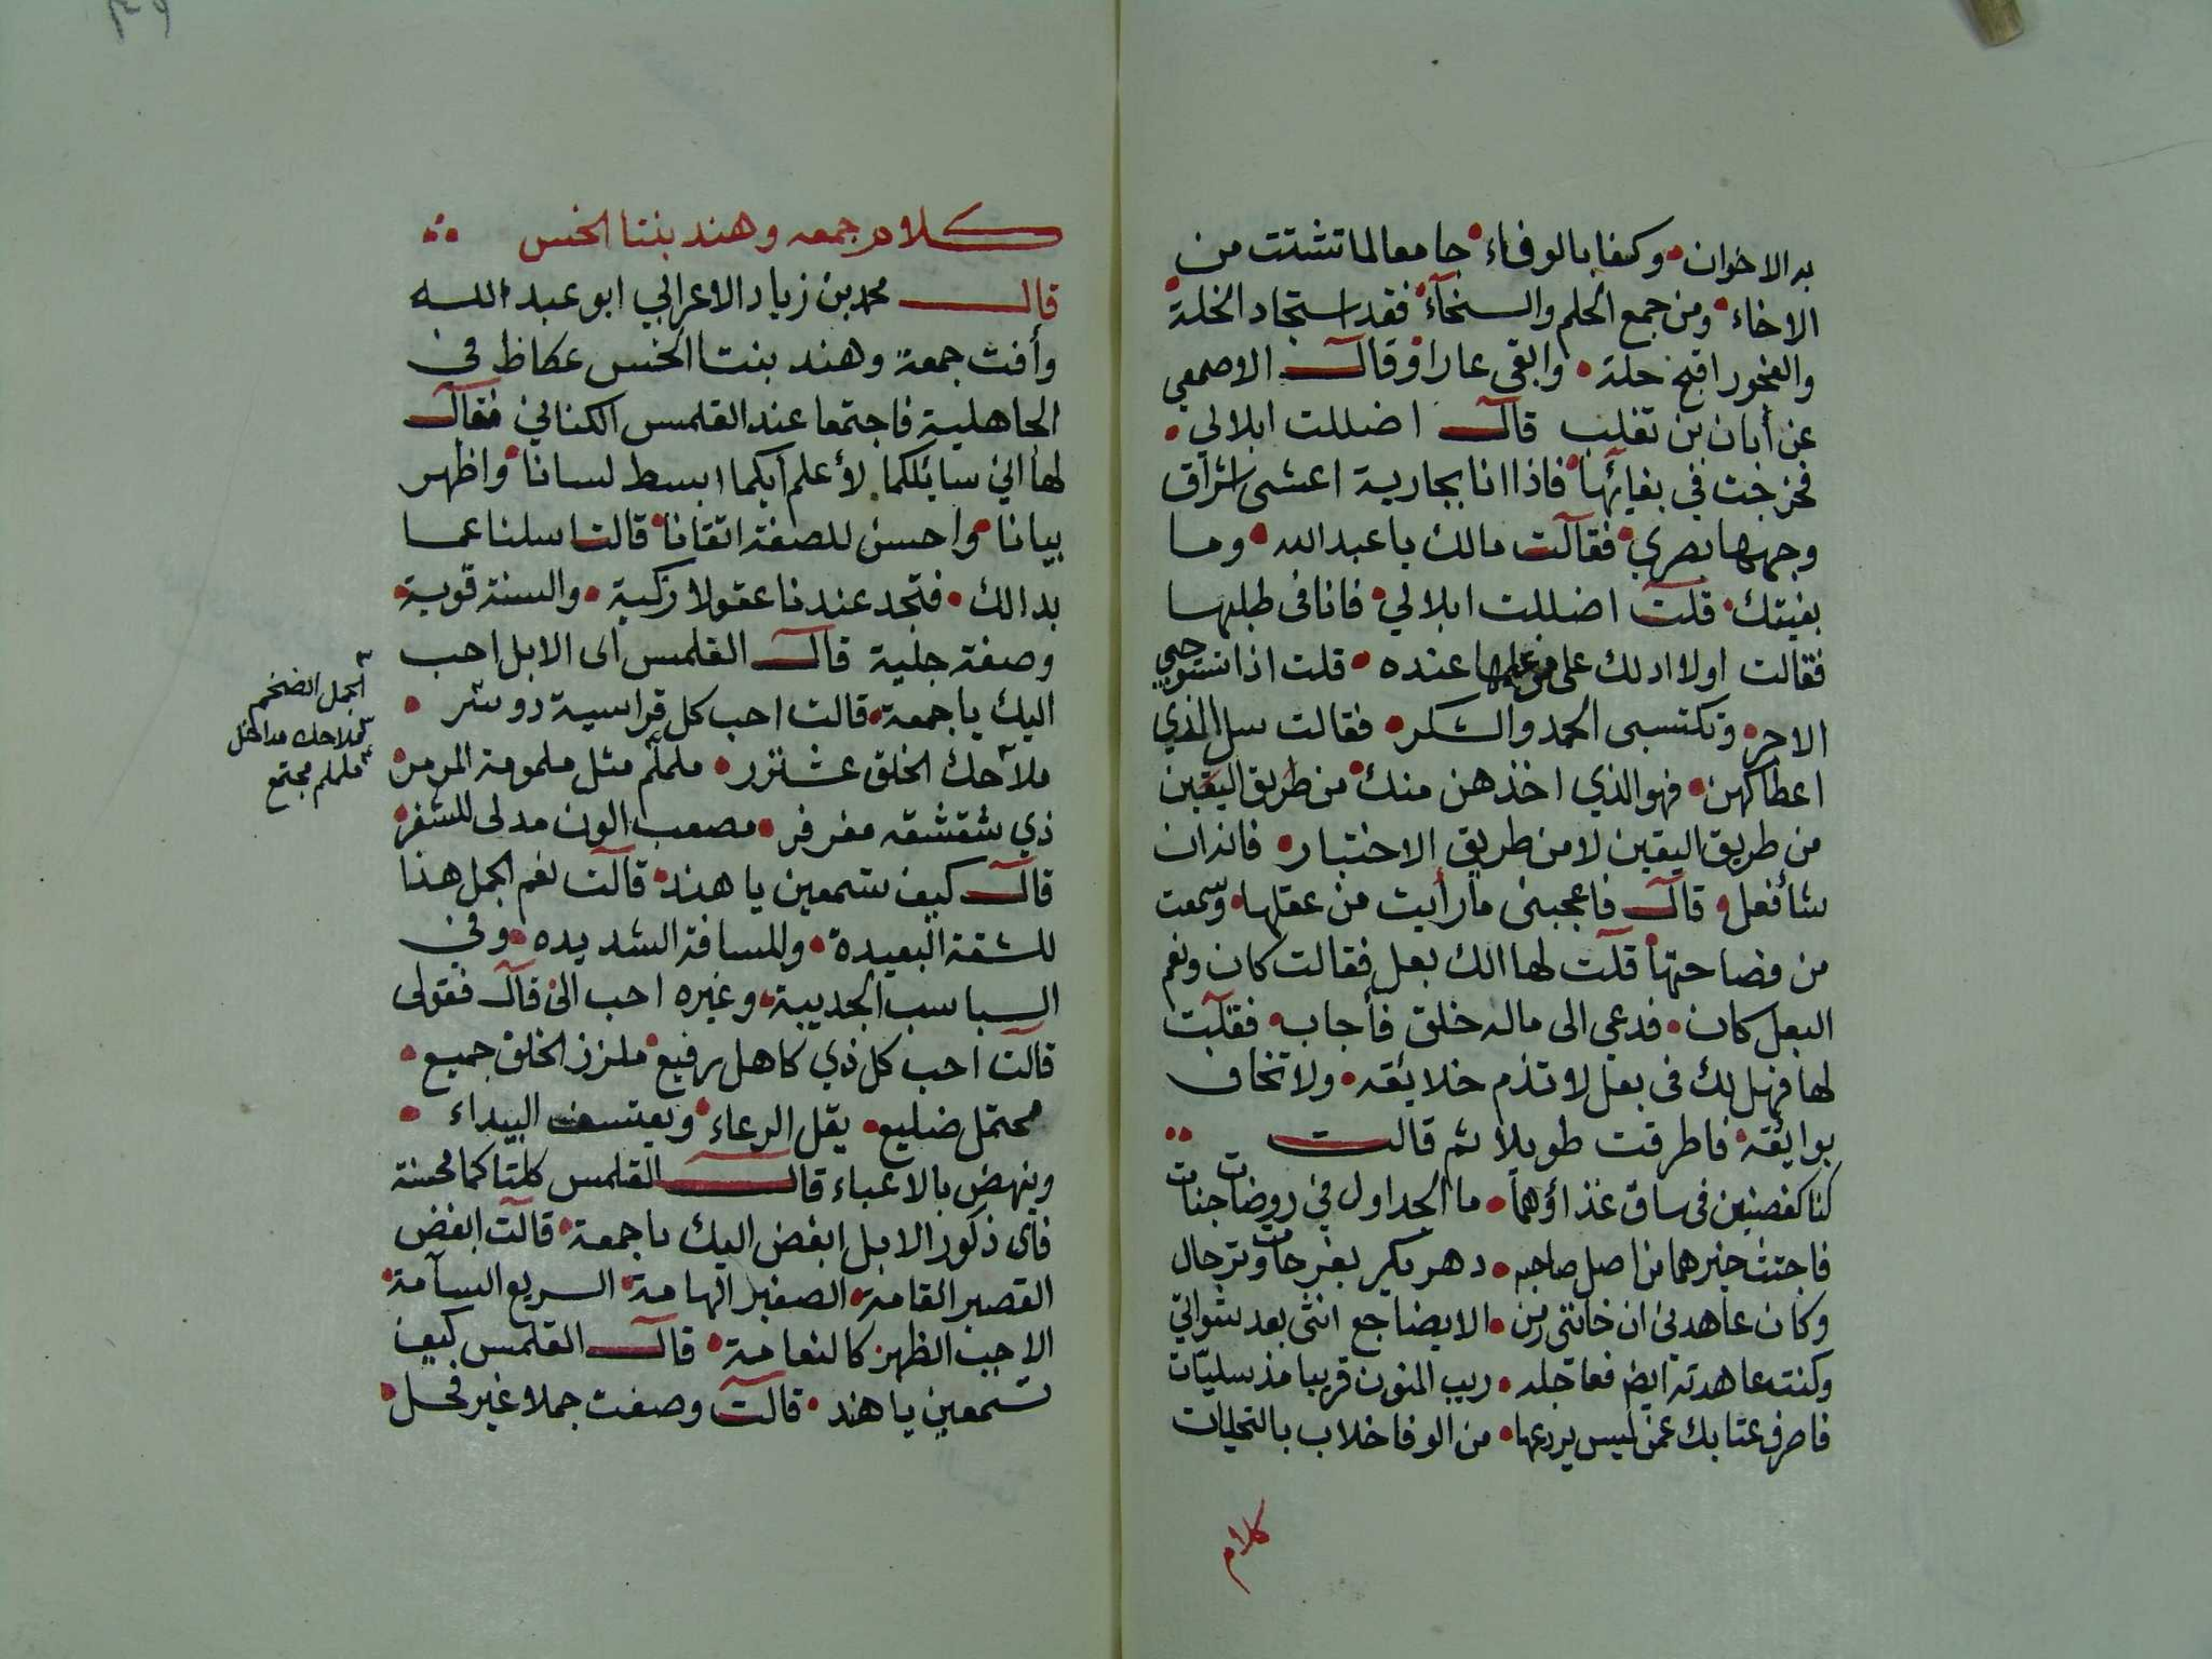 به الاخوان • وكفا بالوفاء • جامعا لما تشتت من
الاخاء • ومن جمع الحلم والسخآء • فقد استجاد الخلة •
والفجور اقبح حلة • وابقى عارا • وقال الاصمعي
عن أبان بن تغلب قال اضللت ابلا لي •
فخرجت في بغائها • فاذا انا بجارية اعشى اشراق
وجهها بصري • فقالت مالك يا عبد الله • وما
بغيتك • قلت اضللت ابلا لي • فانا في طلبها
فقالت اولا ادلك على من علمها عنده • قلت اذا تستوجبي
الاجر • وتكتسبى الحمد والشكر • فقالت سل الذي
اعطاكهن • فهو الذي اخذهن منك • من طريق اليقين
من طريق اليقين لا من طريق الاختبار • فانه ان
شأ فعل • قال فاعجبنى ما رأيت من عقلها • وسمعت
من فصاحتها • قلت لها الك بعل فقالت كان ونعم
البعل كان • فدعي الى ما له خلق فأجاب • فقلت
لها فهل لك في بعل لا تذم خلايقه • ولا تخاف
بوايقه • فاطرقت طويلا ثم قالت ••
كنا كغصنين في ساق غذاؤهما • ما الجداول في روضات جنات
فاجتث خيرهما من اصل صاحبه • دهر يكر بفرحات وترحال
وكان عاهدني ان خانني زمن • الا يضاجع انثى بعد شواتي
وكنت عاهدته ايضا فعاجله • ريب المنون قريبا مذ سليات
فاصرف عتابك عمن ليس يردعها • من الوفا خلاب بالتحليات
كلام
كلام جمعه وهند بنتا الخس
قال محمد بن زياد الاعرابي ابو عبد الله
وأفت جمعة وهند بنتا الخس عكاظ في
الجاهلية فاجتمعا عند القلمس الكناني فقال
لها اني سايلكما لأعلم أيكما ابسط لسانا • واظهر
بيانا • واحسن للصفة اتقانا • قالت اسلنا عما
بدا لك • فتجد عندنا عقولا زكية • والسنة قوية •
وصفة جلية قال القلمس اى الابل احب
اليك يا جمعة • قالت احب كل قراسية دوسر •
ملآحك الخلق عشنزر • ململم مثل ملمومة المرمر •
ذي شقشقه مفرفر • مصعب الون مدلى للشفر •
قال كيف تسمعين يا هند • قالت نعم الجمل هذا
للشقة البعيدة • وللمسافة الشديده • وفي
السباسب الجديبة • وغيره احب الي • قال فقولى
قالت احب كل ذي كاهل رفيع • ملزز الخلق جميع •
محتمل ضليع • يقل الرعاء • ويعتسف البيداء •
وينهض بالاعباء قال القلمس كلتاكما محسنة
فاى ذكور الابل ابغض اليك يا جمعة • قالت ابغض
القصير القامة • الصغير الهامة • السريع السآمة •
الاجب الظهر كالنعامة • قال القلمس كيف
تسمعين يا هند • قالت وصفت جملا غير فحل •
الجمل الضخم
ململم مجتمع